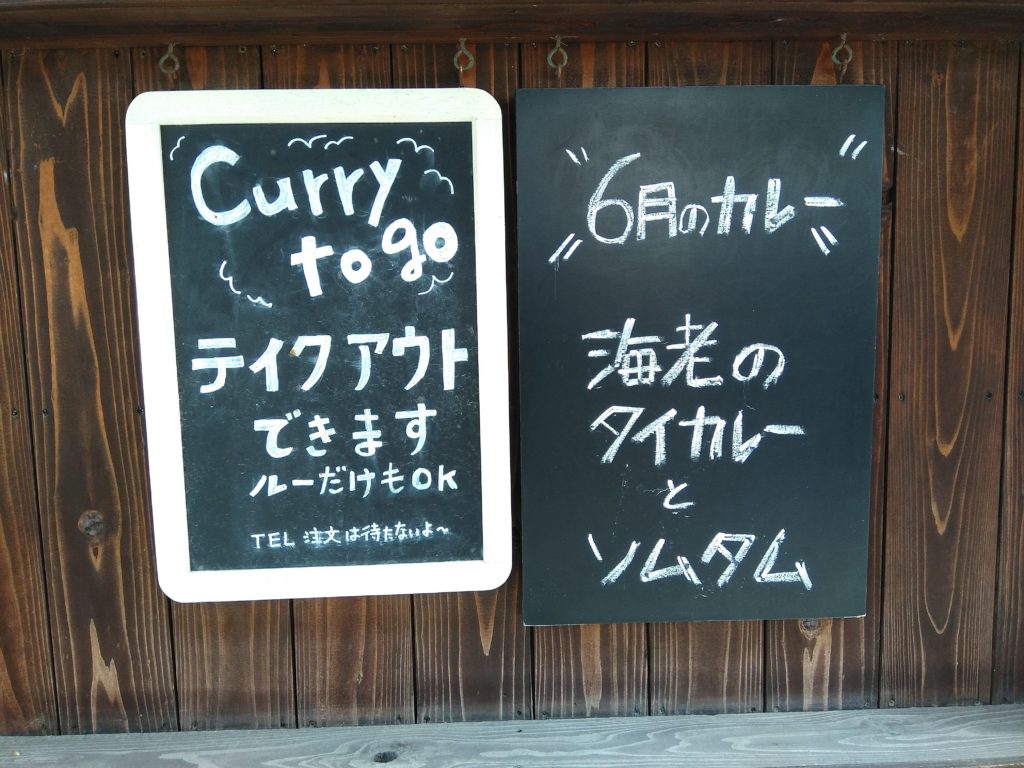 Curry
to go
テイクアウト
できます
ルーだけもOK
TEL 注文は待たないよ〜
6月のカレー
海老の
タイカレー
と
ソムタム